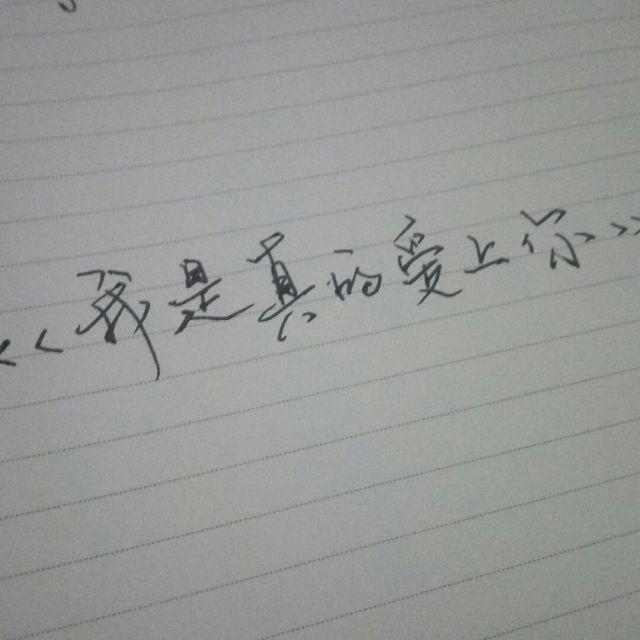 《我是真的爱上你》